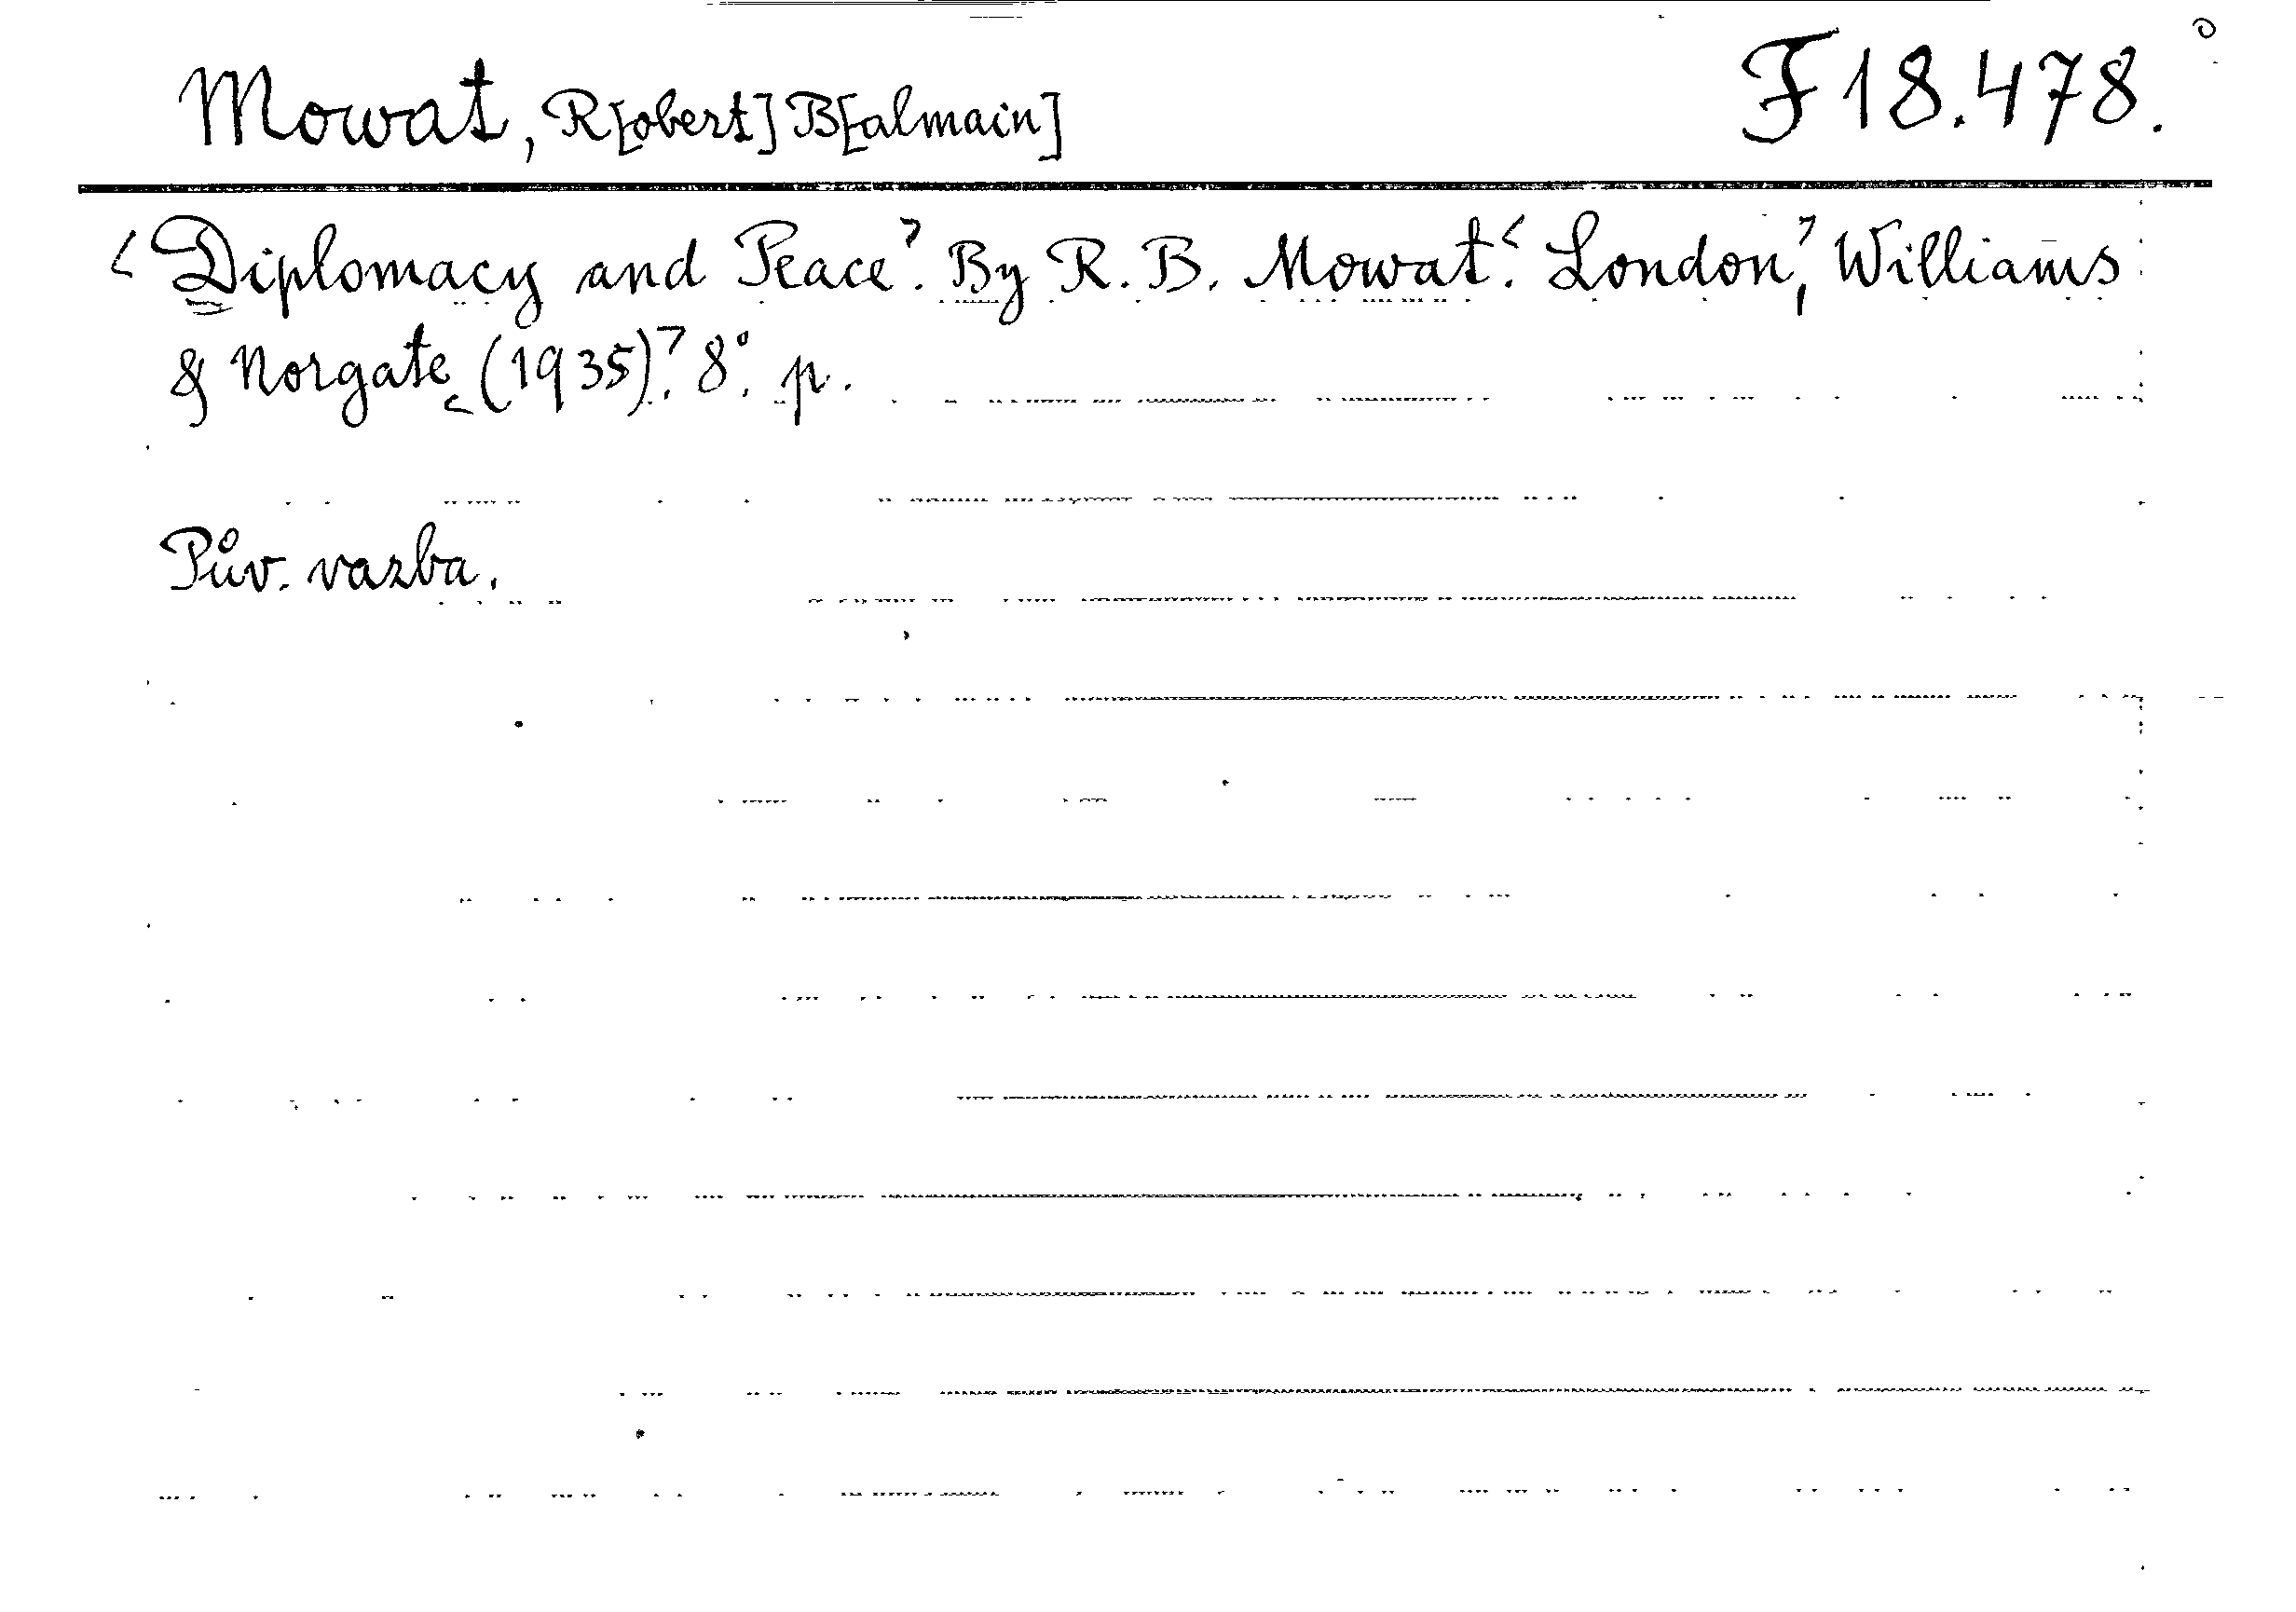 Mowat, R[obert] B[almain] F 18.478.
<Diplomacy and Peace>. By R. B. Mowat.< London,> Williams
& Norgate <(1935)>. 8°. p.
Pův. vazba.